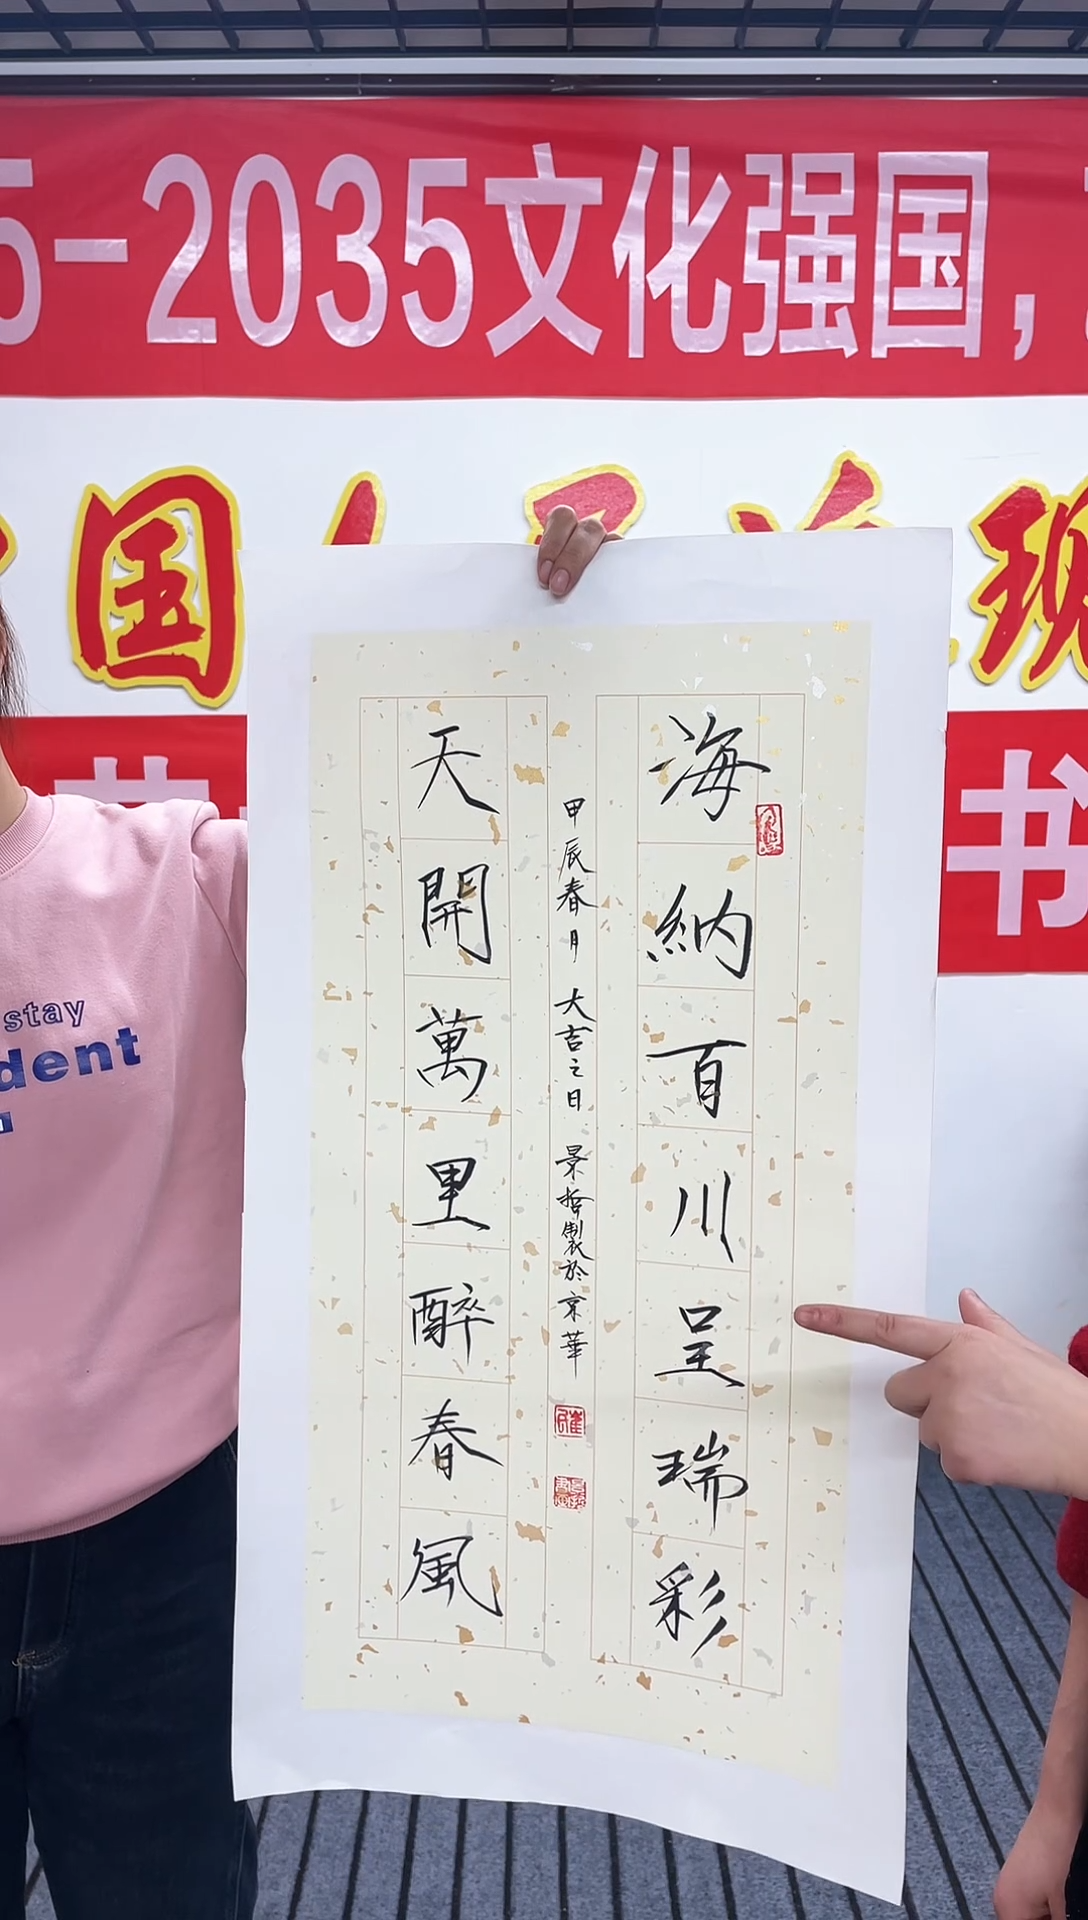 5-2035文化强国，
国 现
书
海納百川呈瑞彩
天開萬里醉春風
甲辰春月 大吉之日 景哲製於京華
崔
stay
dent